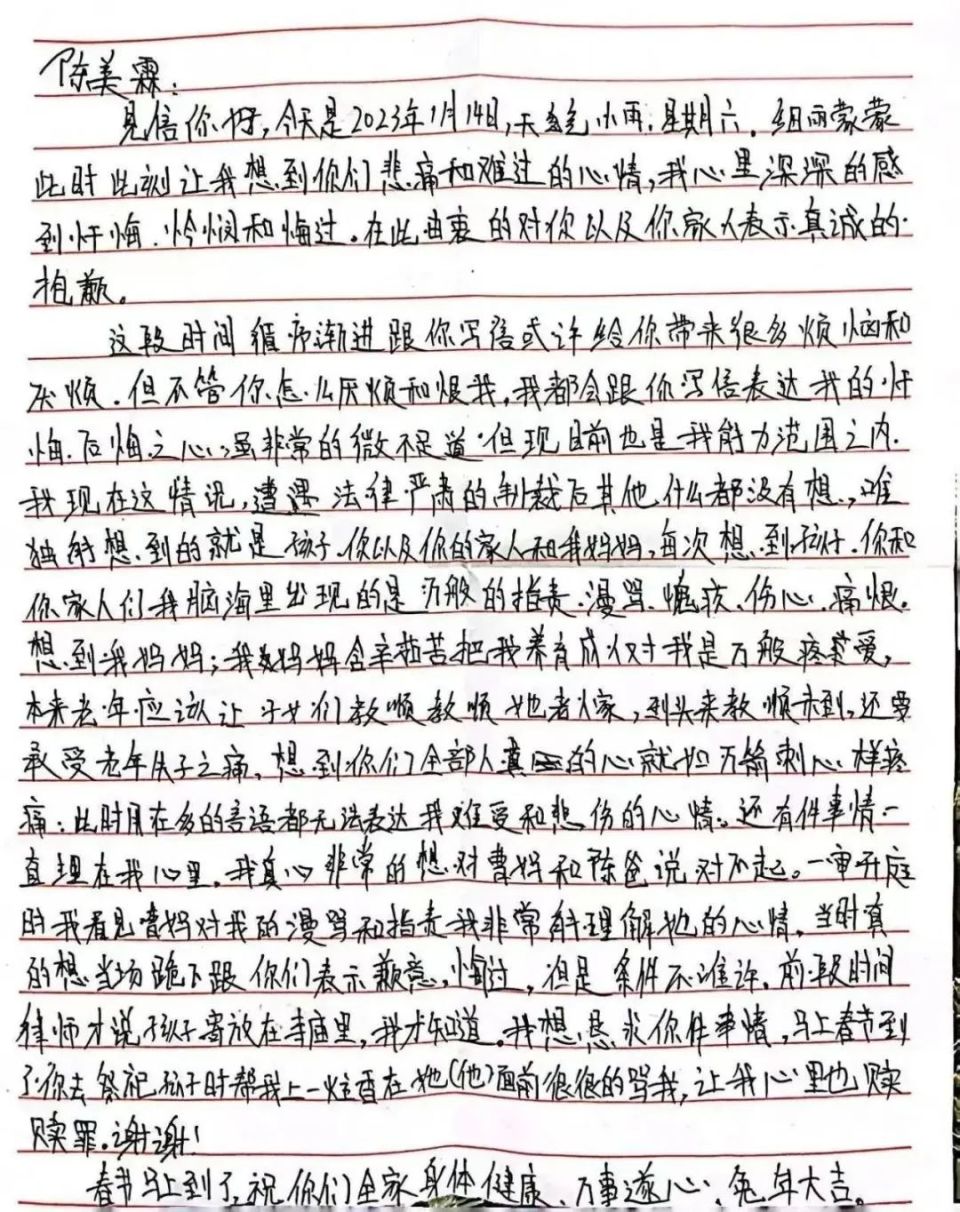 陈美霖:
见信你好,今天是2023年1月14日,天气小雨.星期六.细雨蒙蒙
此时此刻让我想到你们悲痛和难过的心情,我心里深深的感
到忏悔.怜悯和悔过。在此由衷的对你以及你家人表示真诚的
抱歉。
这段时间循序渐进跟你写信或许给你带来很多烦恼和
厌烦.但不管你怎么厌烦和恨我,我都会跟你写信表达我的忏
悔.后悔之心.虽非常的微不足道.但现目前也是我能力范围之内.
我现在这情况,遭遇法律严肃的制裁后其他什么都没有想,唯
独能想到的就是孩子.你以及你的家人和我妈妈,每次想到孩子.你和
你家人们我脑海里出现的是万般的指责.漫骂.憔疾.伤心.痛恨.
想到我妈妈;我妈妈含辛茹苦把我养育成人对我是万般疼爱,
本来老年应该让子女们教顺教顺她老人家,到头来教顺未到,还要
承受老年失子之痛,想到你们全部人真的心就如万箭刺心样疼
痛:此时用在多的言语都无法表达我难受和悲伤的心情。还有件事情一
直埋在我心里,我真心非常的想对曹妈和陈爸说对不起。一审开庭
时我看见曹妈对我的漫骂和指责我非常能理解她的心情,当时真
的想当场跪下跟你们表示歉意,悔过,但是条件不准许.前段时间
律师才说孩子寄放在寺庙里,我才知道.我想恳求你件事情,马上春节到
了你去祭祀孩子时帮我上一炷香在她(他)面前很很的骂我,让我心里也赎
赎罪.谢谢!
春节马上到了,祝你们全家身体健康、万事遂心、兔年大吉。